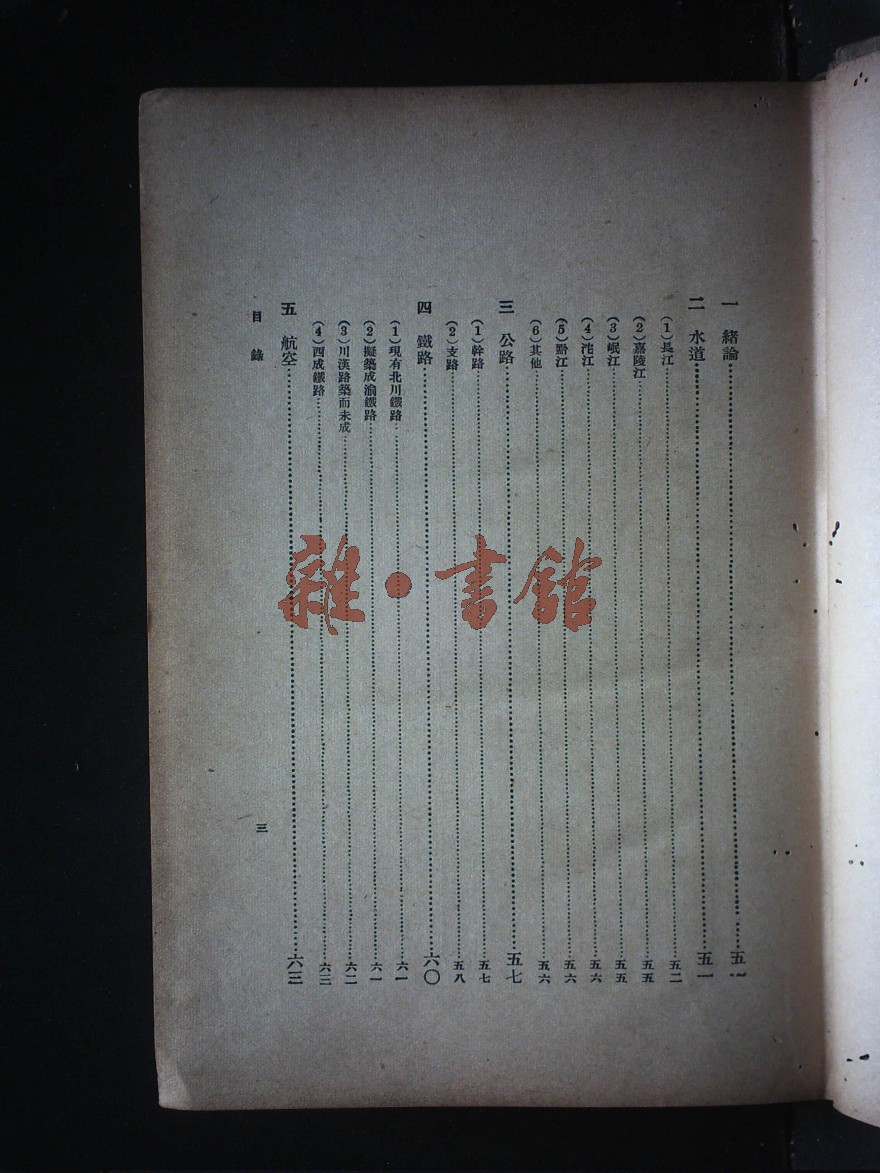 一 緒論……五一
二 水道……五一
(1)長江……五二
(2)嘉陵江……五五
(3)岷江……五五
(4)沱江……五六
(5)黔江……五六
(6)其他……五六
三 公路……五七
(1)幹路……五七
(2)支路……五八
四 鐵路……六〇
(1)現有北川鐵路……六一
(2)擬築成渝鐵路……六一
(3)川漢路築而未成……六二
(4)四成鐵路……六三
五 航空……六三
目錄 三
雜·書館